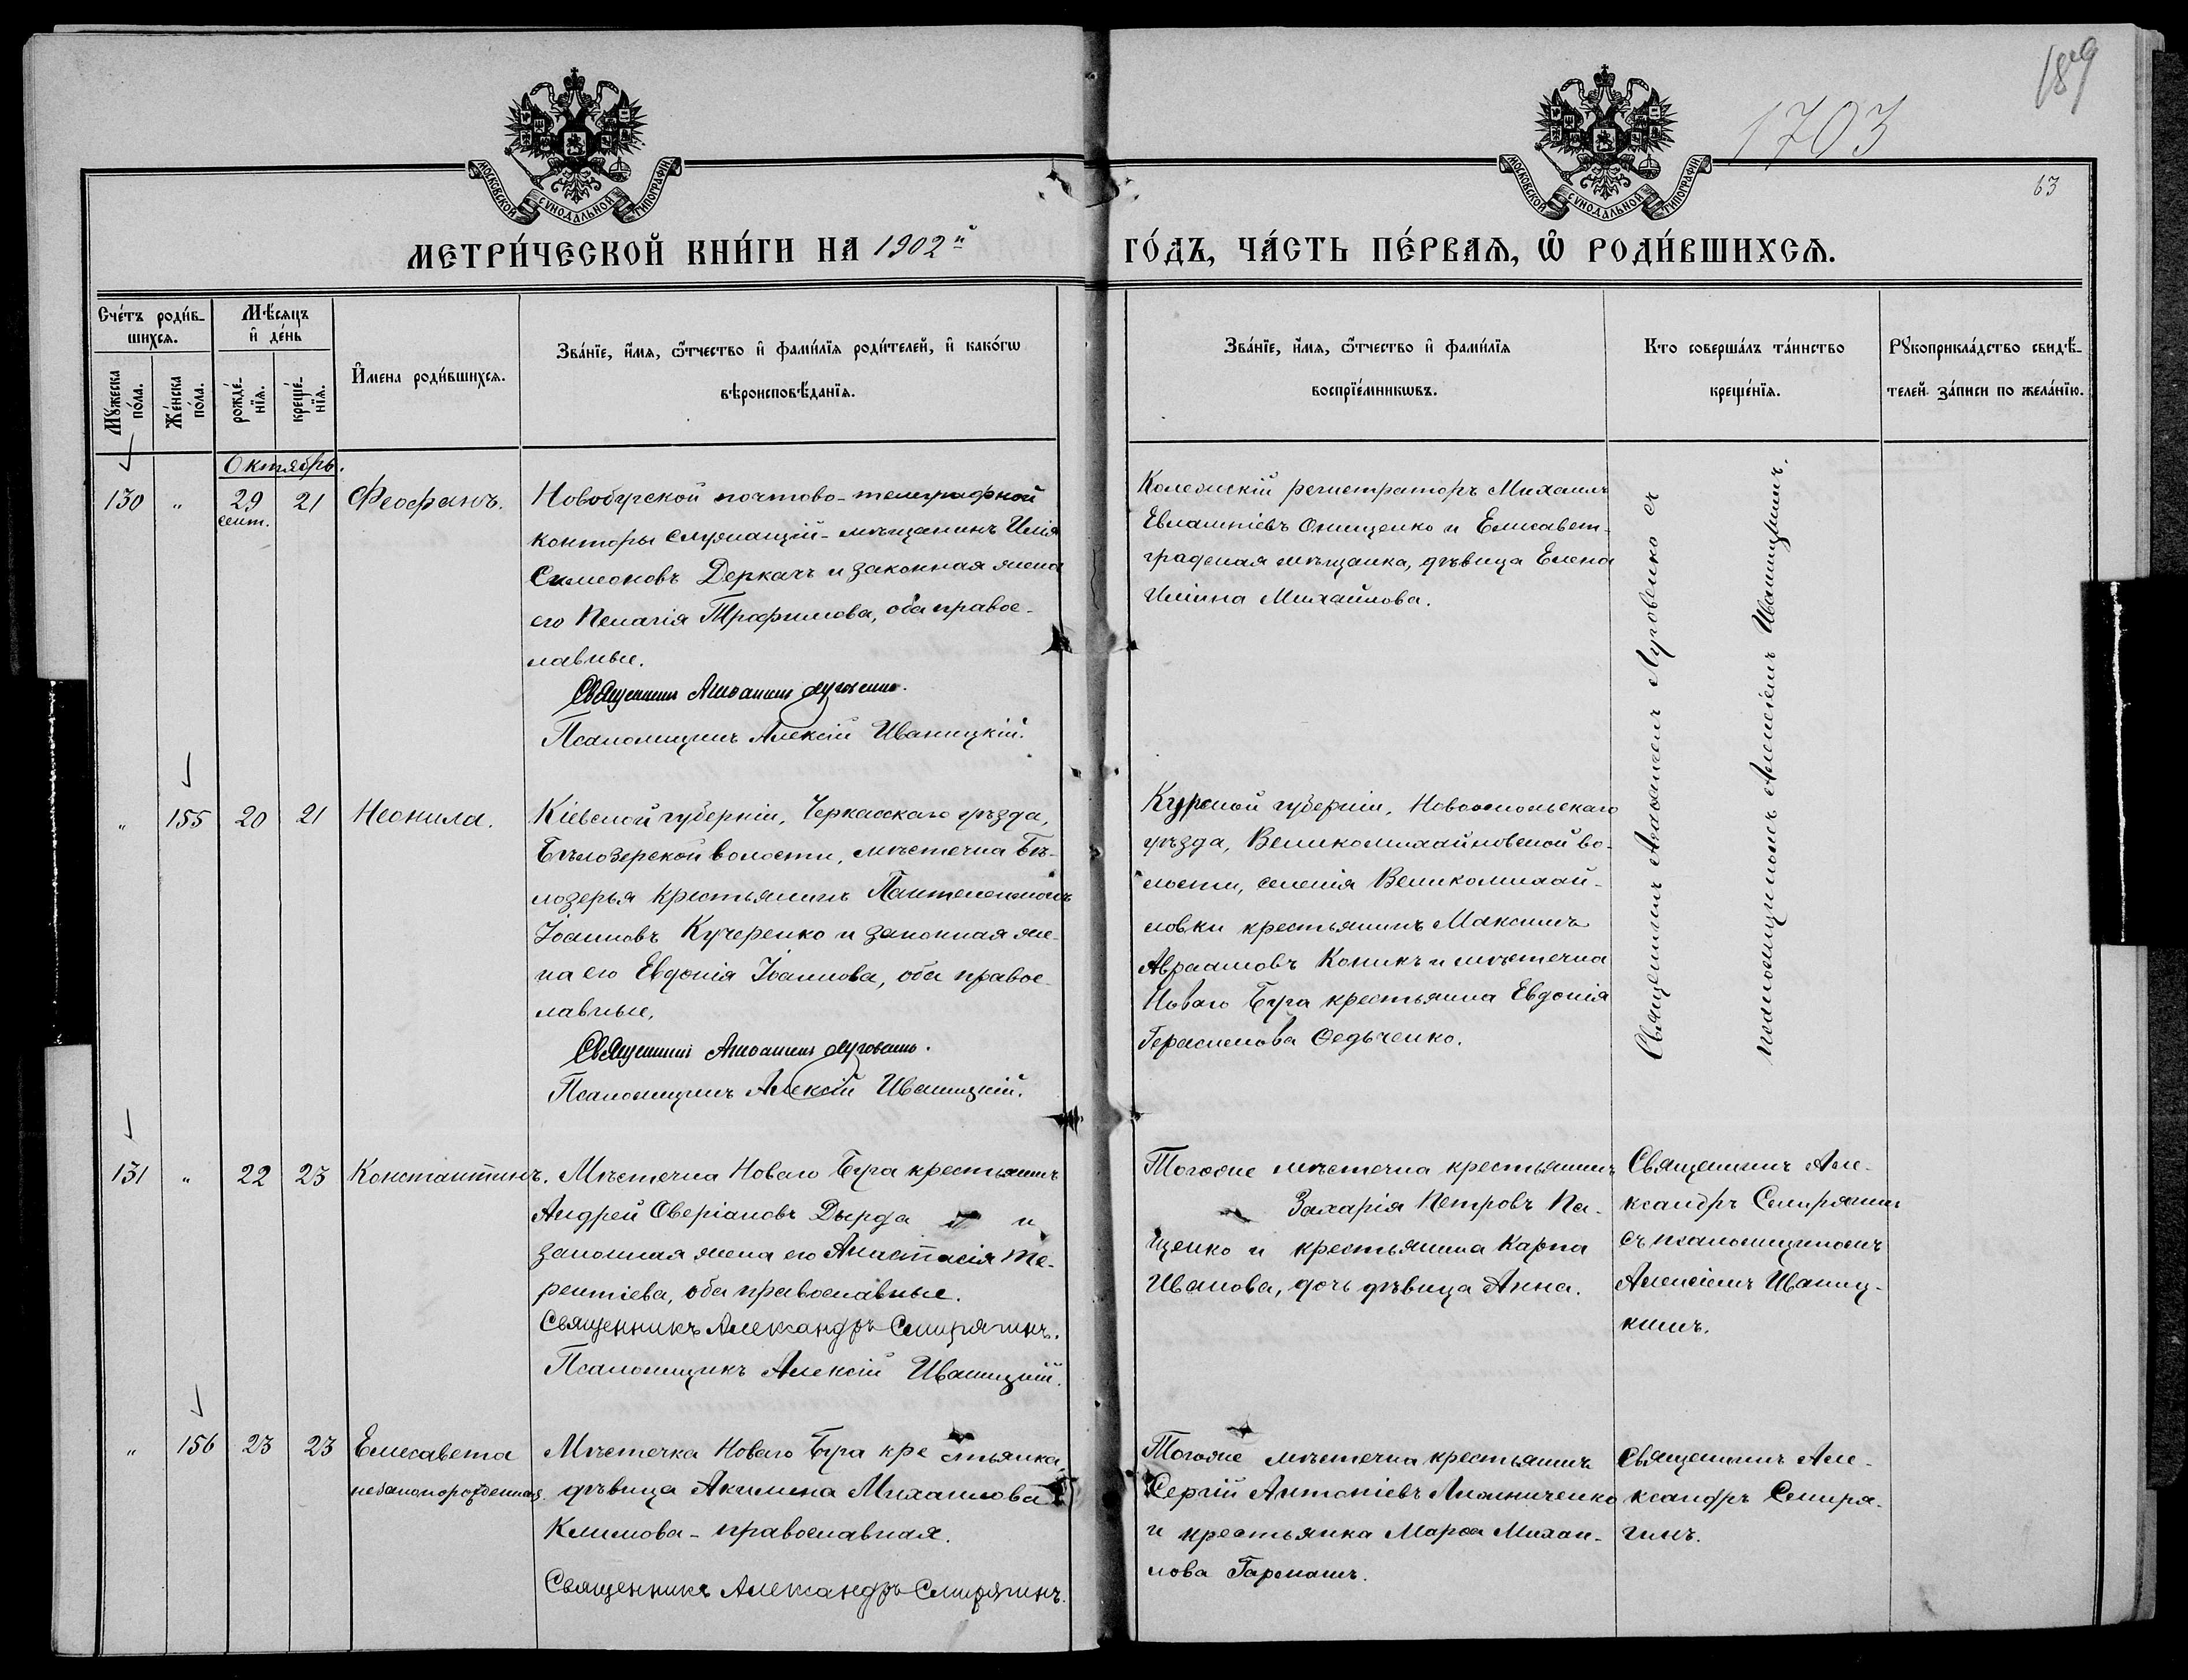 189
1703
63
МОСКОВСКОЙ СѴНОДАЛЬНОЙ ТИПОГРАФІИ
МОСКОВСКОЙ СѴНОДАЛЬНОЙ ТИПОГРАФІИ
МЕТРИ́ЧЕСКОЙ КНИ́ГИ НА 1902й ГО́ДЪ, ЧА́СТЬ ПЕ́РВАЯ, Ѡ РОДИ́ВШИХСЯ.
Сче́тъ роди́в-
шихся.
Мѣ́сяцъ
и де́нь
Мꙋ́жеска по́ла.
Же́нска по́ла.
рожде́-
нїя.
креще́-
нїя.
И́мена роди́вшихся.
Зва́нїе, и́мя, ѻ҆́тчество и фами́лїя роди́телей, и како́гѡ
вѣроисповѣ́данїя.
Зва́нїе, и́мя, ѻ҆́тчество и фами́лїя
воспрїе́мникѡвъ.
Кто соверша́лъ та́инство
креще́нїя.
Рꙋкоприкла́дство свидѣ́-
телей за́писи по жела́нїю.
Октябрь.
130 " 29 сент. 21 Феофанъ.
Новобугской почтово-телеграфной
конторы служащій-мѣщанинъ Илія
Симеоновъ Деркачъ и законная жена
его Пелагія Трофимова, оба правос-
лавные.
Священникъ Луговенко.
Псаломщикъ Алексій Иваницкій.
Колежскій регистраторъ Михаилъ
Евлампіевъ Онищенко и Елисавет-
градская мѣщанка, дѣвица Елена
Ильина Михайлова.
Священникъ Луговенко съ
псаломщикомъ Алексіемъ Иваницкимъ.
" 155 20 21 Неонила.
Кіевской губерніи, Черкасскаго уѣзда,
Бѣлозерской волости, мѣстечка Бѣ-
лозерья крестьянинъ Пантелеимонъ
Іоанновъ Кучеренко и законная же-
на его Евдокія Іоаннова, оба правос-
лавные.
Священникъ Луговенко.
Псаломщикъ Алексій Иваницкій.
Курской губерніи, Новооскольскаго
уѣзда, Великомихайловской во-
лости, селенія Великомихай-
ловки крестьянинъ Максимъ
Авраамовъ Коникъ и мѣстечка
Новаго Буга крестьянка Евдокія
Герасимова Ѳедьченко.
131 " 22 23 Константинъ.
Мѣстечка Новаго Буга крестьянинъ
Андрей Оверіановъ Дырда и
законная жена его Анастасія Те-
рентіева, оба православные.
Священникъ Александръ Смирягинъ.
Псаломщикъ Алексій Иваницкій.
Тогоже мѣстечка крестьянинъ
Захарія Петровъ Па-
щенко и крестьянина Карпа
Иванова, дочь дѣвица Анна.
Священникъ Але-
ксандръ Смирягинъ
съ псаломщикомъ
Алексіемъ Иваниц-
кимъ.
" 156 23 23 Елисавета
незаконорожденная.
Мѣстечка Новаго Буга крестьянка,
дѣвица Акилина Михаилова
Климова-православная.
Священникъ Александръ Смирягинъ.
Тогоже мѣстечка крестьянинъ
Сергій Антоніевъ
и крестьянка Марѳа Михаи-
лова Гармашъ.
Священникъ Але-
ксандръ Смиря-
гинъ.